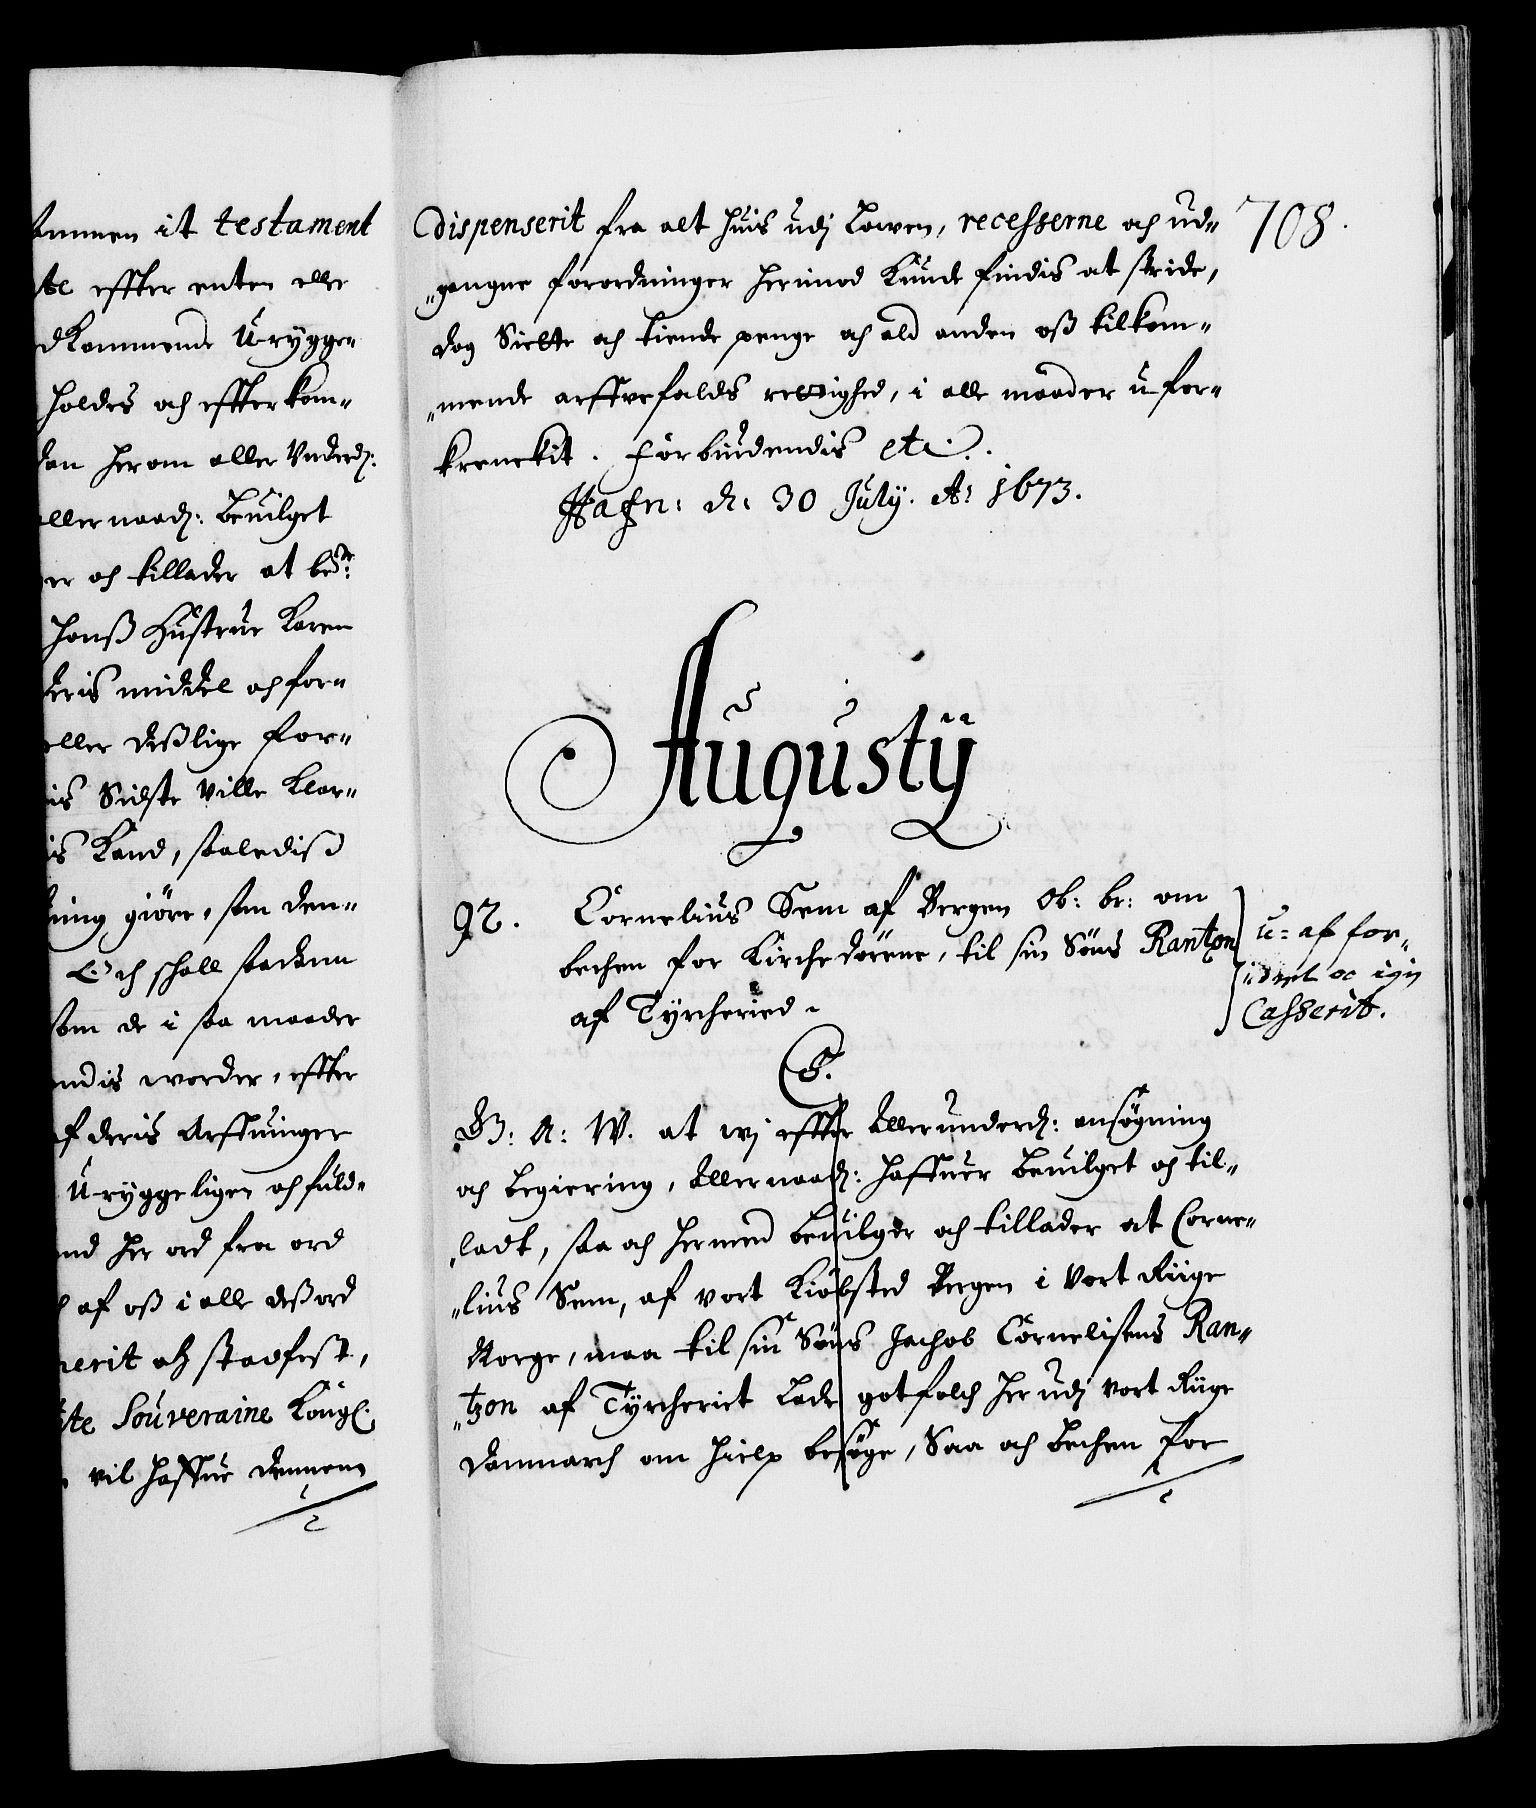 ammen it testament
te effter enten eller
dkommende U-rygge-
holdes och effterkom-
dan herom aller Underd:
allernaad: bevilget
er och tillader at bed:te
Hanß Hustrue Karen
deris middel och for-
eller deßlige for-
is Sidste Ville klar-
is Kand, saaledis
ning giöre, som den-
Och schall saadan
som de i saa maader
endis worder, effter
af deris Arffuinger
U-ryggeligen och fuld-
end her ord fra ord
af oß i alle deß ord
nerit och stadfest,
te Souveraine Kongl:
vil haffue dennem
708.
Dispenserit fra alt huis udj Lowen, recesserne och ud-
"gangne forordninger herimod Kunde findis at stride,
dog Siette och tiende penge och ald anden oß tilkom-
"mende arffuefalds rettighed, i alle maader u-for-
krenckit. Forbiudendis etc:.
Haffn: d: 30 July. Ao 1673.
Augustij
92. Cornelius Sem af Bergen Ob: br: om
becken for Kirchedörene, til sin Söns Rantzon
af Tyrcheried.
u-af for-
"dret oc igien
Casserit.
C5.
G: A: W. at wj effter Allerunderd: ansögning
och begiering, Allernaad: haffuer bevilget och til-
"ladt, saa och hermed bevilger och tillader at Corne-
"lius Sem, af vort Kiöbsted Bergen i Vort Riige
Norge, maa til sin Söns Jachob Cornelisens Ran-
"tzon af Tyrcheriet lade gotfolch her udj vort Riige
Danmarch om hielp besöge, Saa och becken for